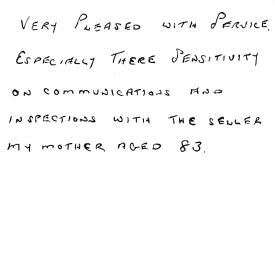 VERY PLEASED WITH SERVICE.
ESPECIALLY THERE SENSITIVITY
ON COMMUNICATIONS AND
INSPECTIONS WITH THE SELLER
MY MOTHER AGED 83.